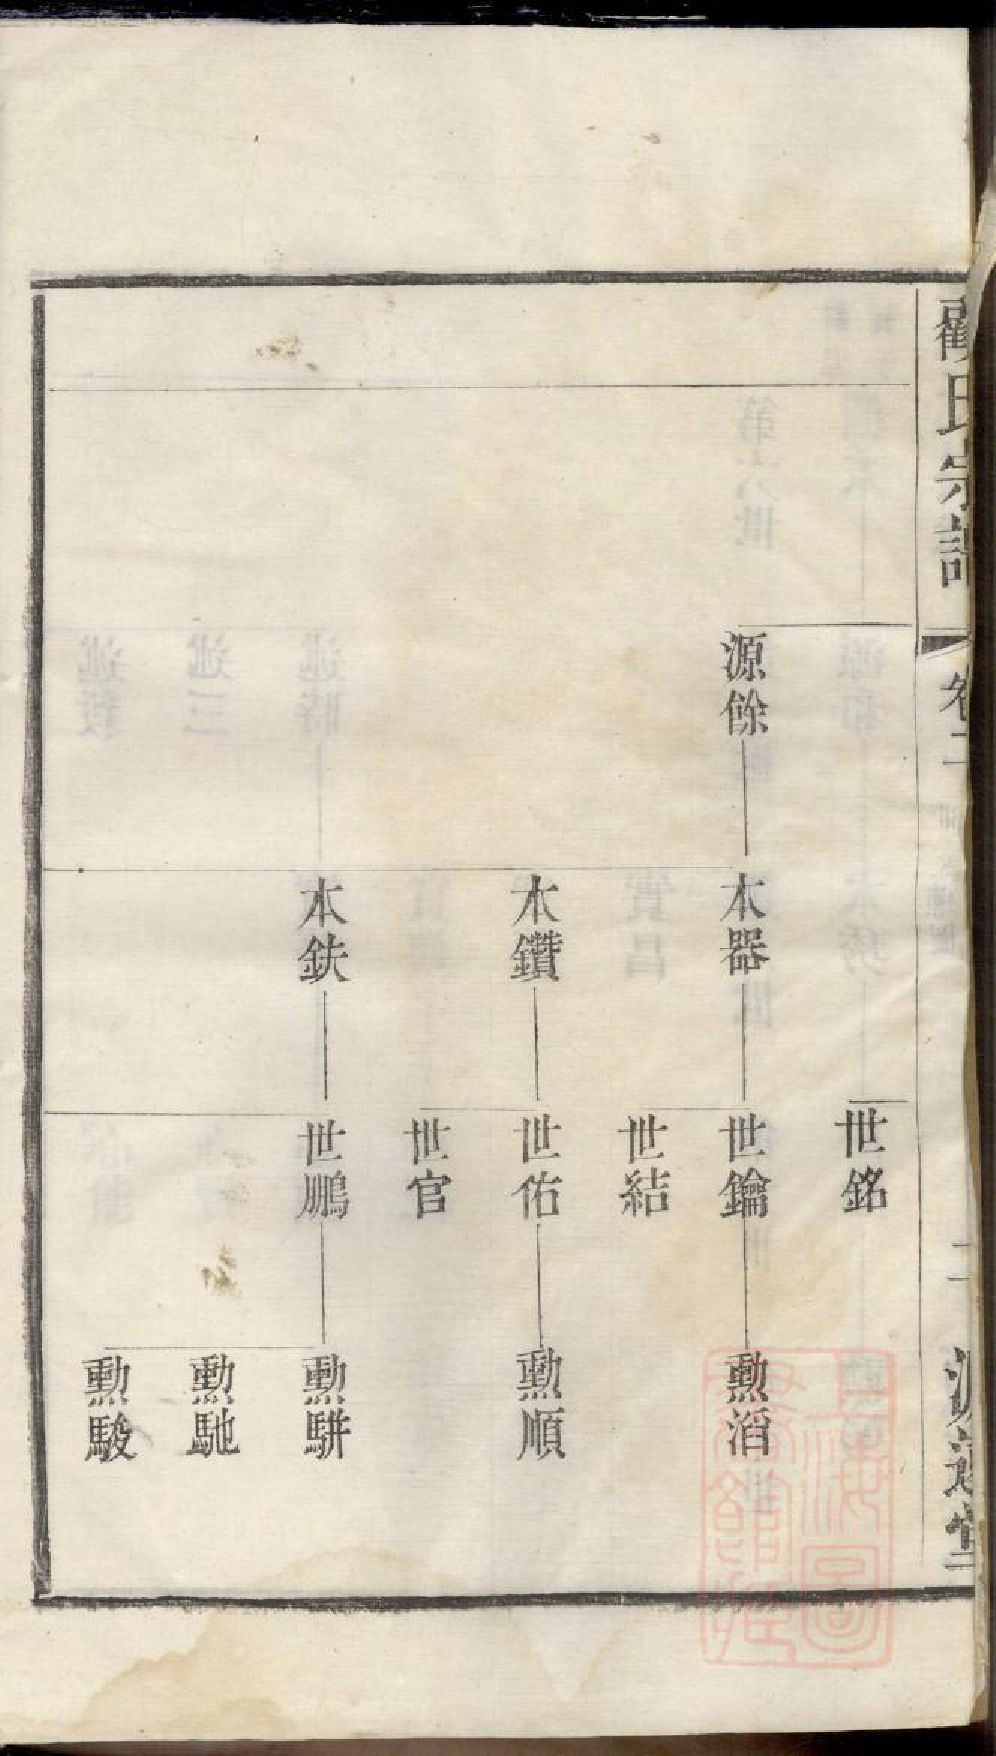 氏宗譜
卷二
二
源遠堂
世銘
源餘
本器
世鑰
勲滔
世結
本鑽
世佑
勲順
世官
本鈇
世鵬
勲駢
勲馳
勲駿